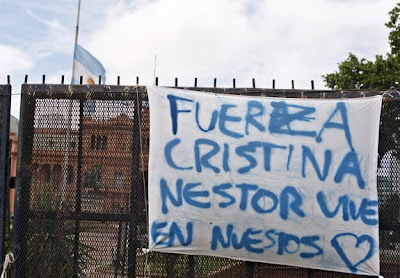 FUERZA
CRISTINA
NESTOR VIVE
EN NUESTOS